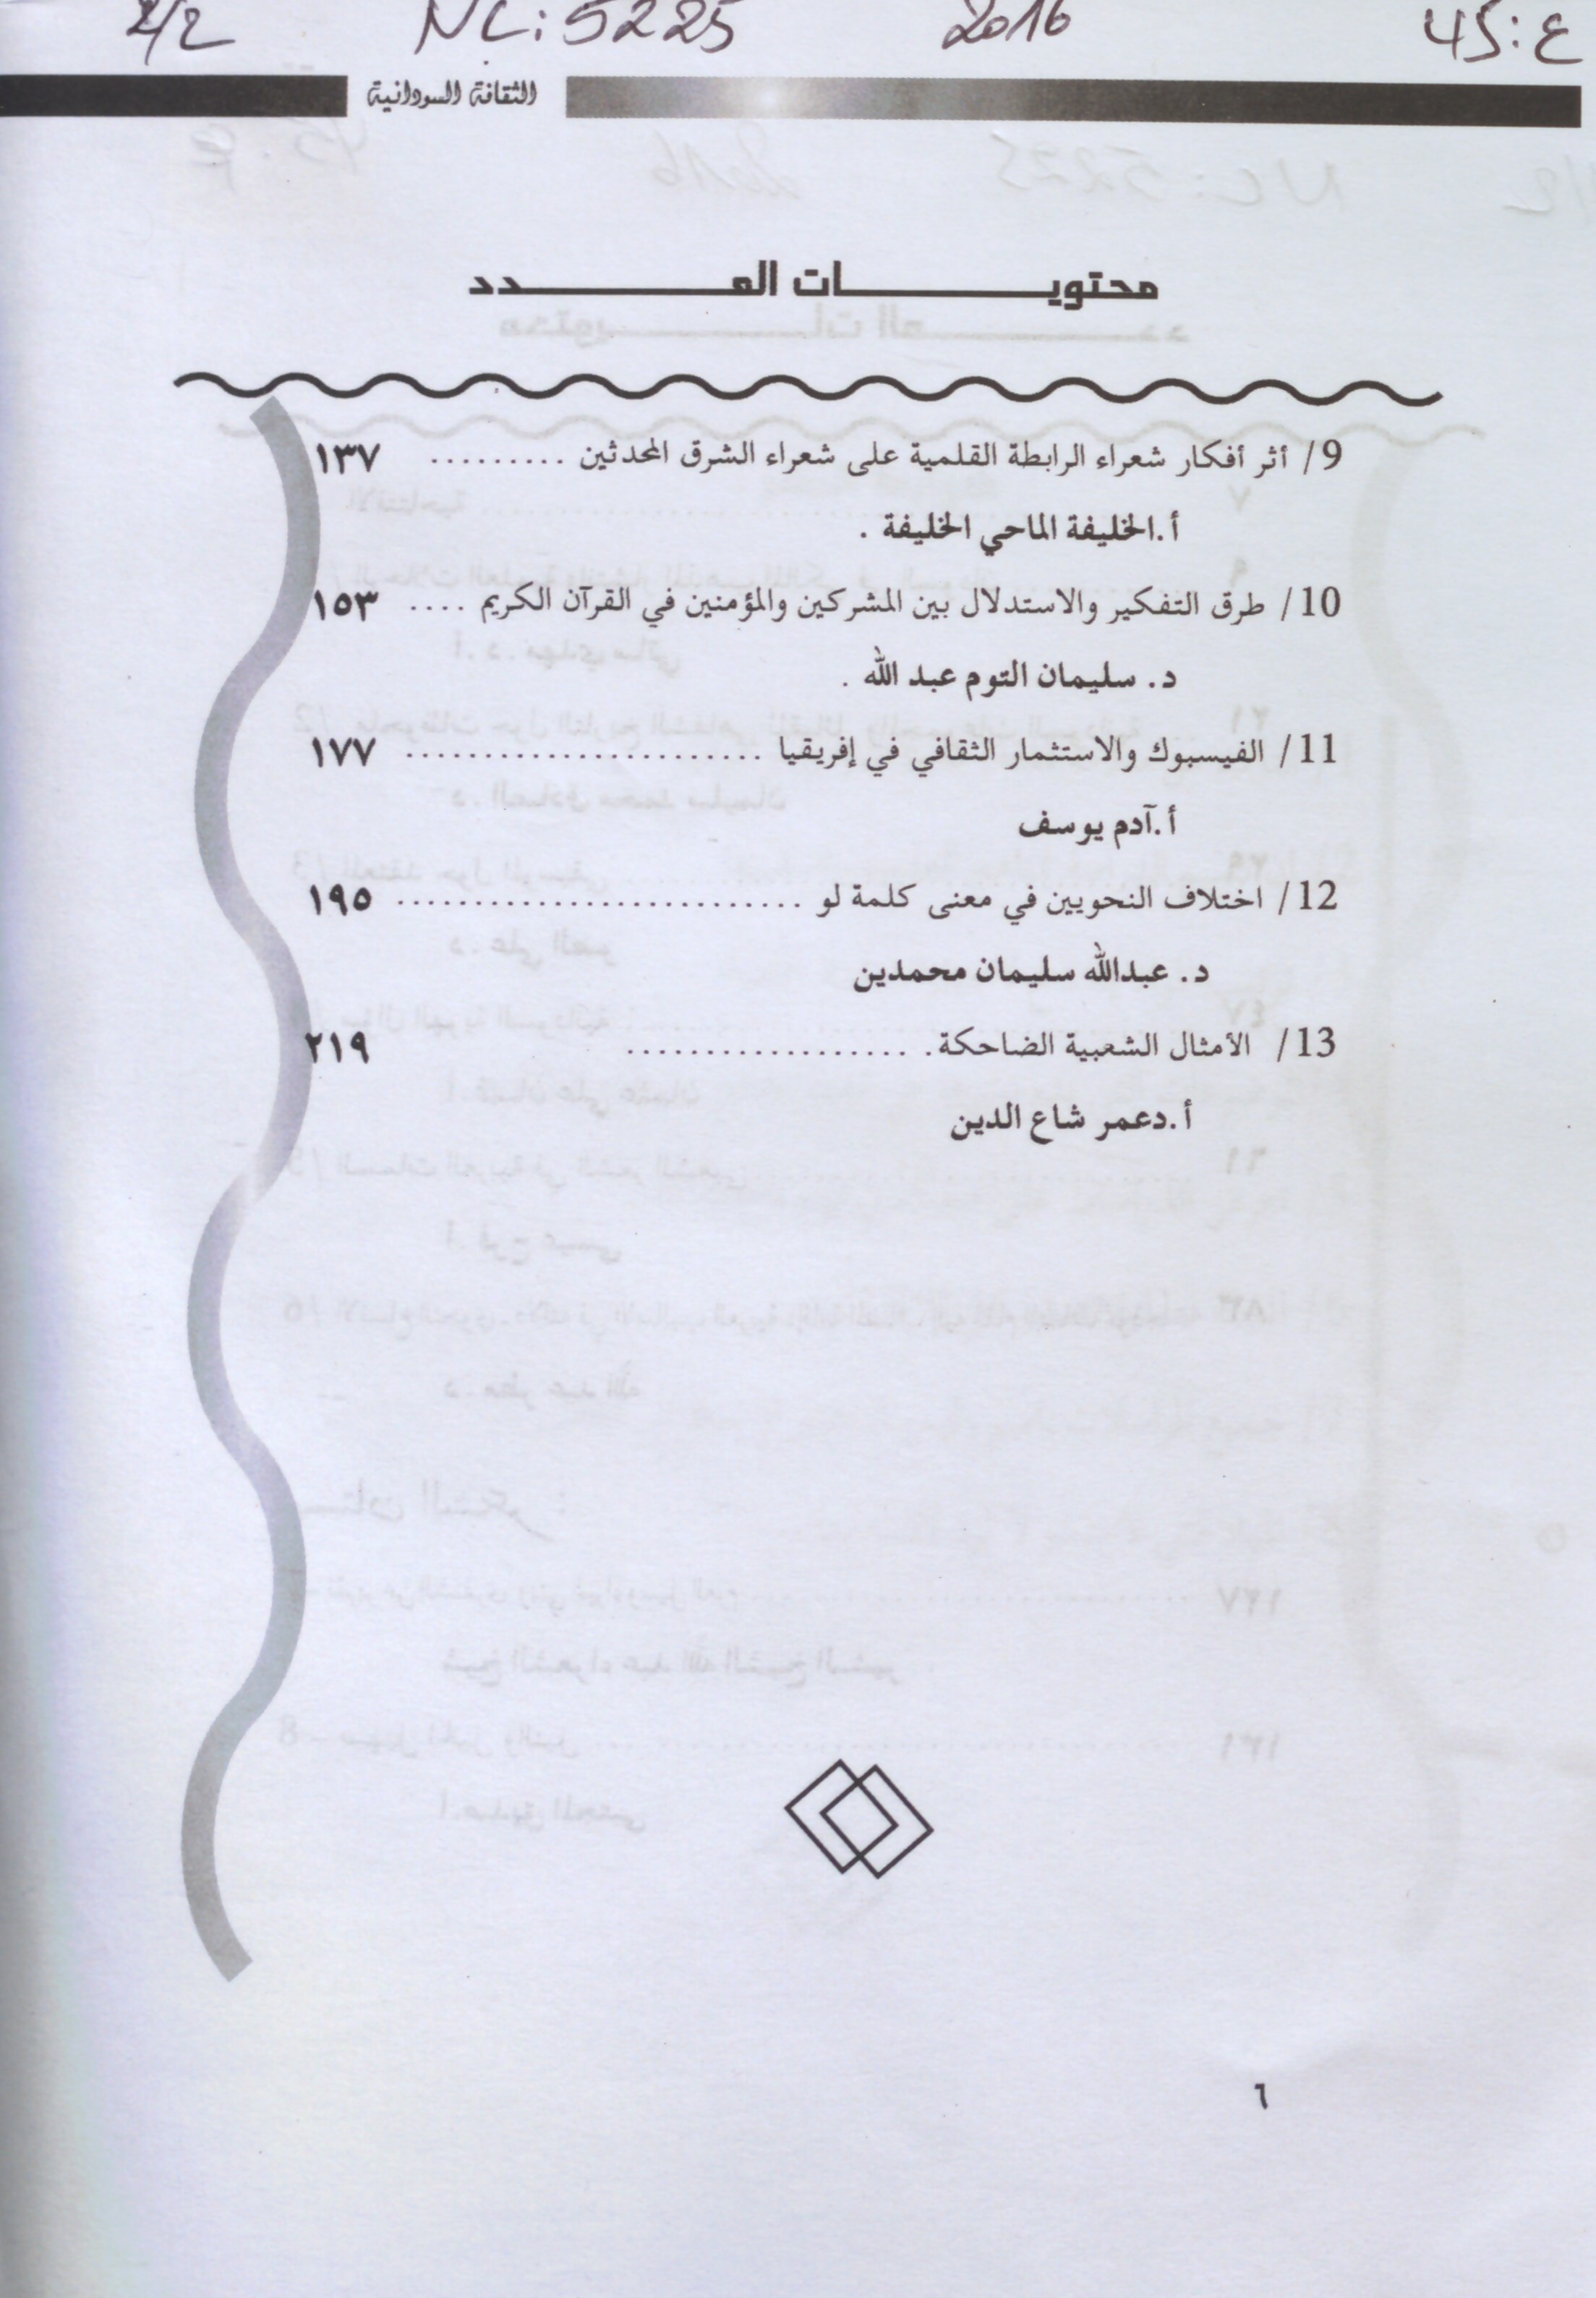 ع: 45 2016 NC: 5225 2/2
الثقافة السودانية
محتويات العدد
9/ أثر أفكار شعراء الرابطة القلمية على شعراء الشرق المحدثين ......... ١٣٧
أ.الخليفة الماحي الخليفة .
10/ طرق التفكير والاستدلال بين المشركين والمؤمنين في القرآن الكريم .... ١٥٣
د. سليمان التوم عبد الله .
11/ الفيسبوك والاستثمار الثقافي في إفريقيا ....................... ١٧٧
أ.آدم يوسف
12/ اختلاف النحويين في معنى كلمة لو .......................... ١٩٥
د. عبدالله سليمان محمدين
13/ الأمثال الشعبية الضاحكة. .................. ٢١٩
أ.دعمر شاع الدين
٦